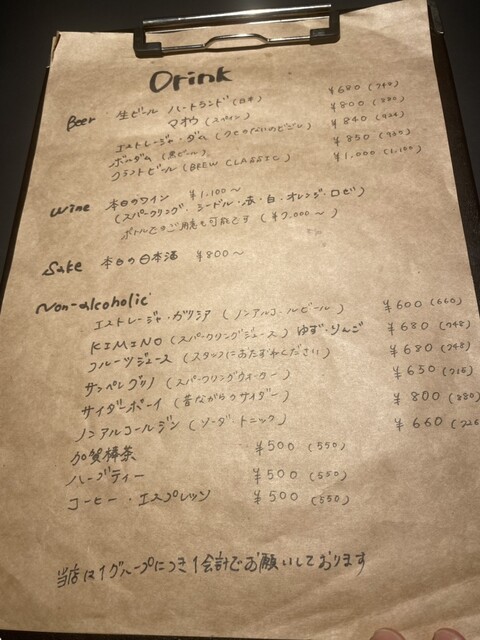 Drink
Beer 生ビール ハートランド(日本) ¥680(748)
マオウ(スペイン) ¥800(880)
エストレージャ・ダム(クセのないのどごし) ¥840(924)
ボルダム(黒ビール) ¥850(930)
クラフトビール(BREW CLASSIC) ¥1,000(1,100)
Wine 本日のワイン ¥1,100〜
(スパークリング、シードル・赤・白・オレンジ・ロゼ)
ボトルでのご用意も可能です(¥7,000〜)
Sake 本日の日本酒 ¥800〜
Non-alcoholic
エストレージャ・ガリシア(ノンアルコールビール) ¥600(660)
KIMINO(スパークリングジュース)ゆず・りんご ¥680(748)
フルーツジュース(スタッフにおたずねください) ¥680(748)
サンペレグリノ(スパークリングウォーター) ¥650(715)
サイダーポーイ(昔ながらのサイダー) ¥800(880)
ノンアルコールジン(ソーダ・トニック) ¥660(726
加賀棒茶 ¥500(550)
ハーブティー ¥500(550)
コーヒー・エスプレッソ ¥500(550)
当店は1グループにつき1会計でお願いしております